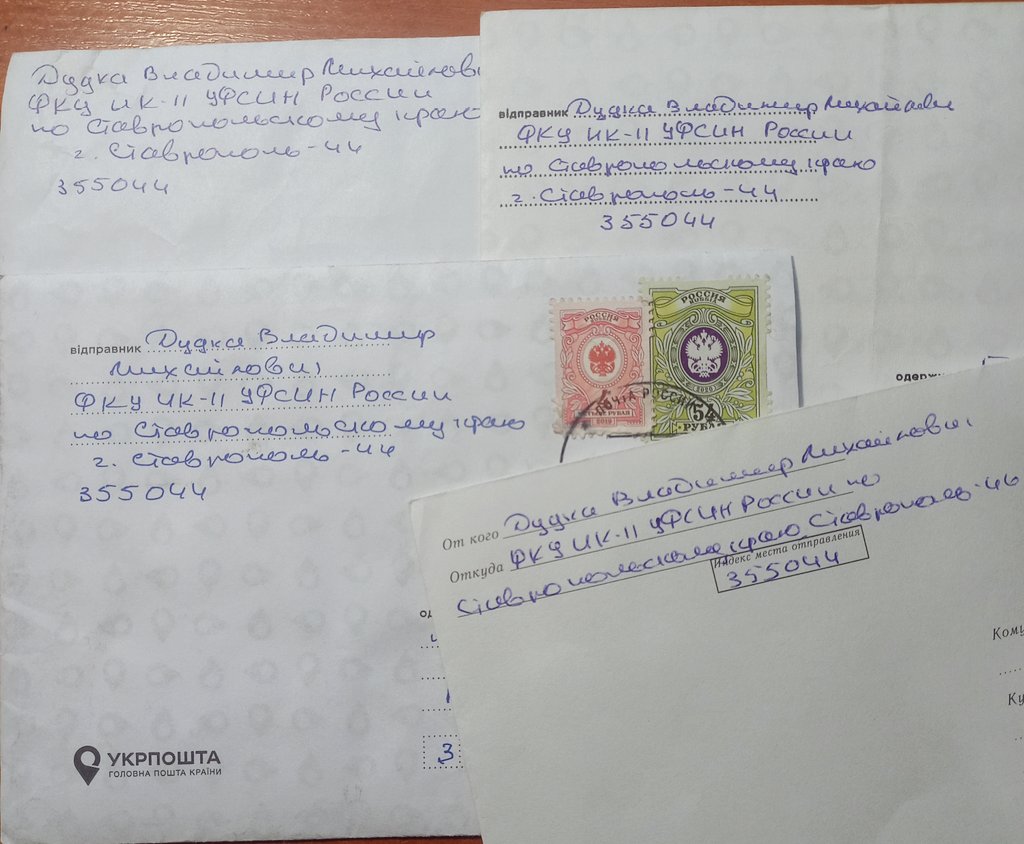 Дудка Владимир Михайлови
ФКУ ИК-11 УФСИН России
по Ставропольскому краю
г. Ставрополь-44
355044
відправник Дудка Владимир Михайлови
ФКУ ИК-11 УФСИН России
по Ставропольскому краю
г. Ставрополь-44
355044
відправник Дудка Владимир
Михайлович
ФКУ ИК-11 УФСИН России
по Ставропольскому краю
г. Ставрополь-44
355044
РОССИЯ
ROSSIJA
2019
РОССИЯ
ROSSIJA
2020
54
РУБЛ
ПОЧТА РОССИИ
одерж
От кого Дудка Владимир Михайлович
Откуда ФКУ ИК-11 УФСИН России по
Ставропольскому краю Ставрополь-44
Индекс места отправления
355044
Кому
Ку
од
3
УКРПОШТА
ГОЛОВНА ПОШТА КРАЇНИ